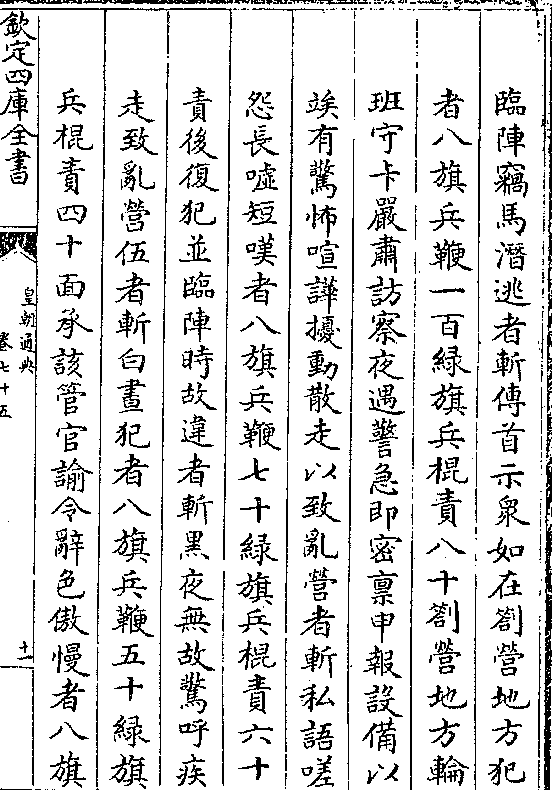 臨陣竊馬潛逃者斬傳首示衆如在劄營地方犯
者八旗兵鞭一百緑旗兵棍責八十劄營地方輪
班守卡嚴肅訪察夜遇警急即密禀申報設備以
竢有驚怖喧譁擾動散走以致亂營者斬私語嗟
怨長嘘短嘆者八旗兵鞭七十緑旗兵棍責六十
責後復犯並臨陣時故違者斬黑夜無故驚呼疾
走致亂營伍者斬白晝犯者八旗兵鞭五十緑旗
兵棍責四十面承該管官諭令辭色傲慢者八旗
欽定四庫全書
皇朝通典
卷七十五
十一